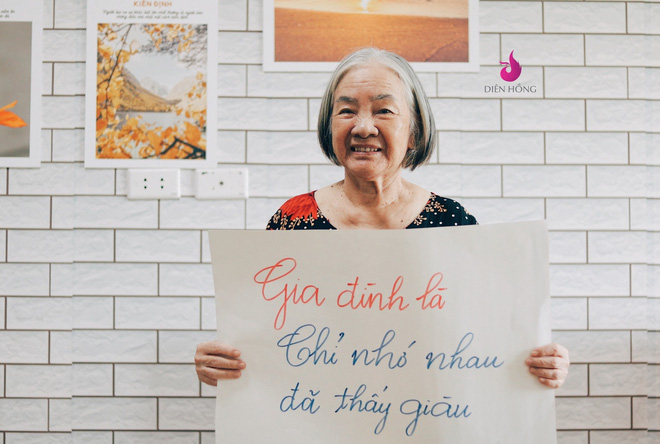 KIÊN ĐỊNH
DIÊN HỒNG
Gia đình là
Chỉ nhớ nhau
đã thấy giàu